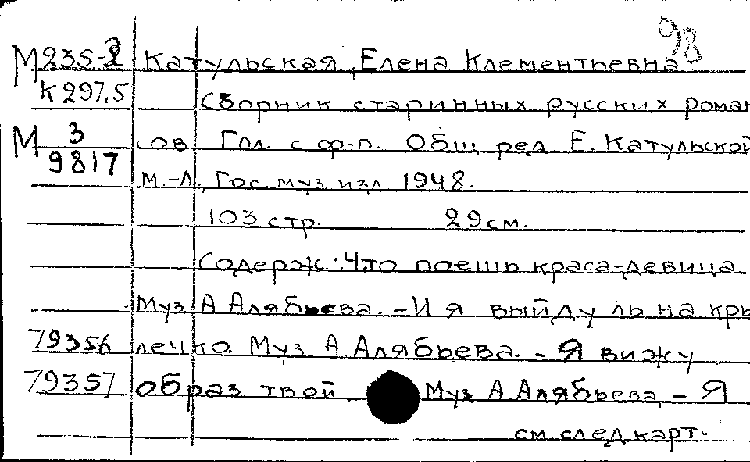 98
М235-2 Катульская, Елена Клементьевна
К297.5 Сборник старинных русских роман
М 3/9817 сов Гол. с ф-п. Общ. ред. Е. Катульской
М.-Л., Гос. муз. изд. 1948.
103 стр. 29 см.
Содерж.: Что поешь краса-девица.
Муз. А Алябьева. – И я выйду ль на кры
79356 лечко Муз А Алябьева. – Я вижу
79357 образ твой Муз А Алябьева, – Я
см. след. карт.